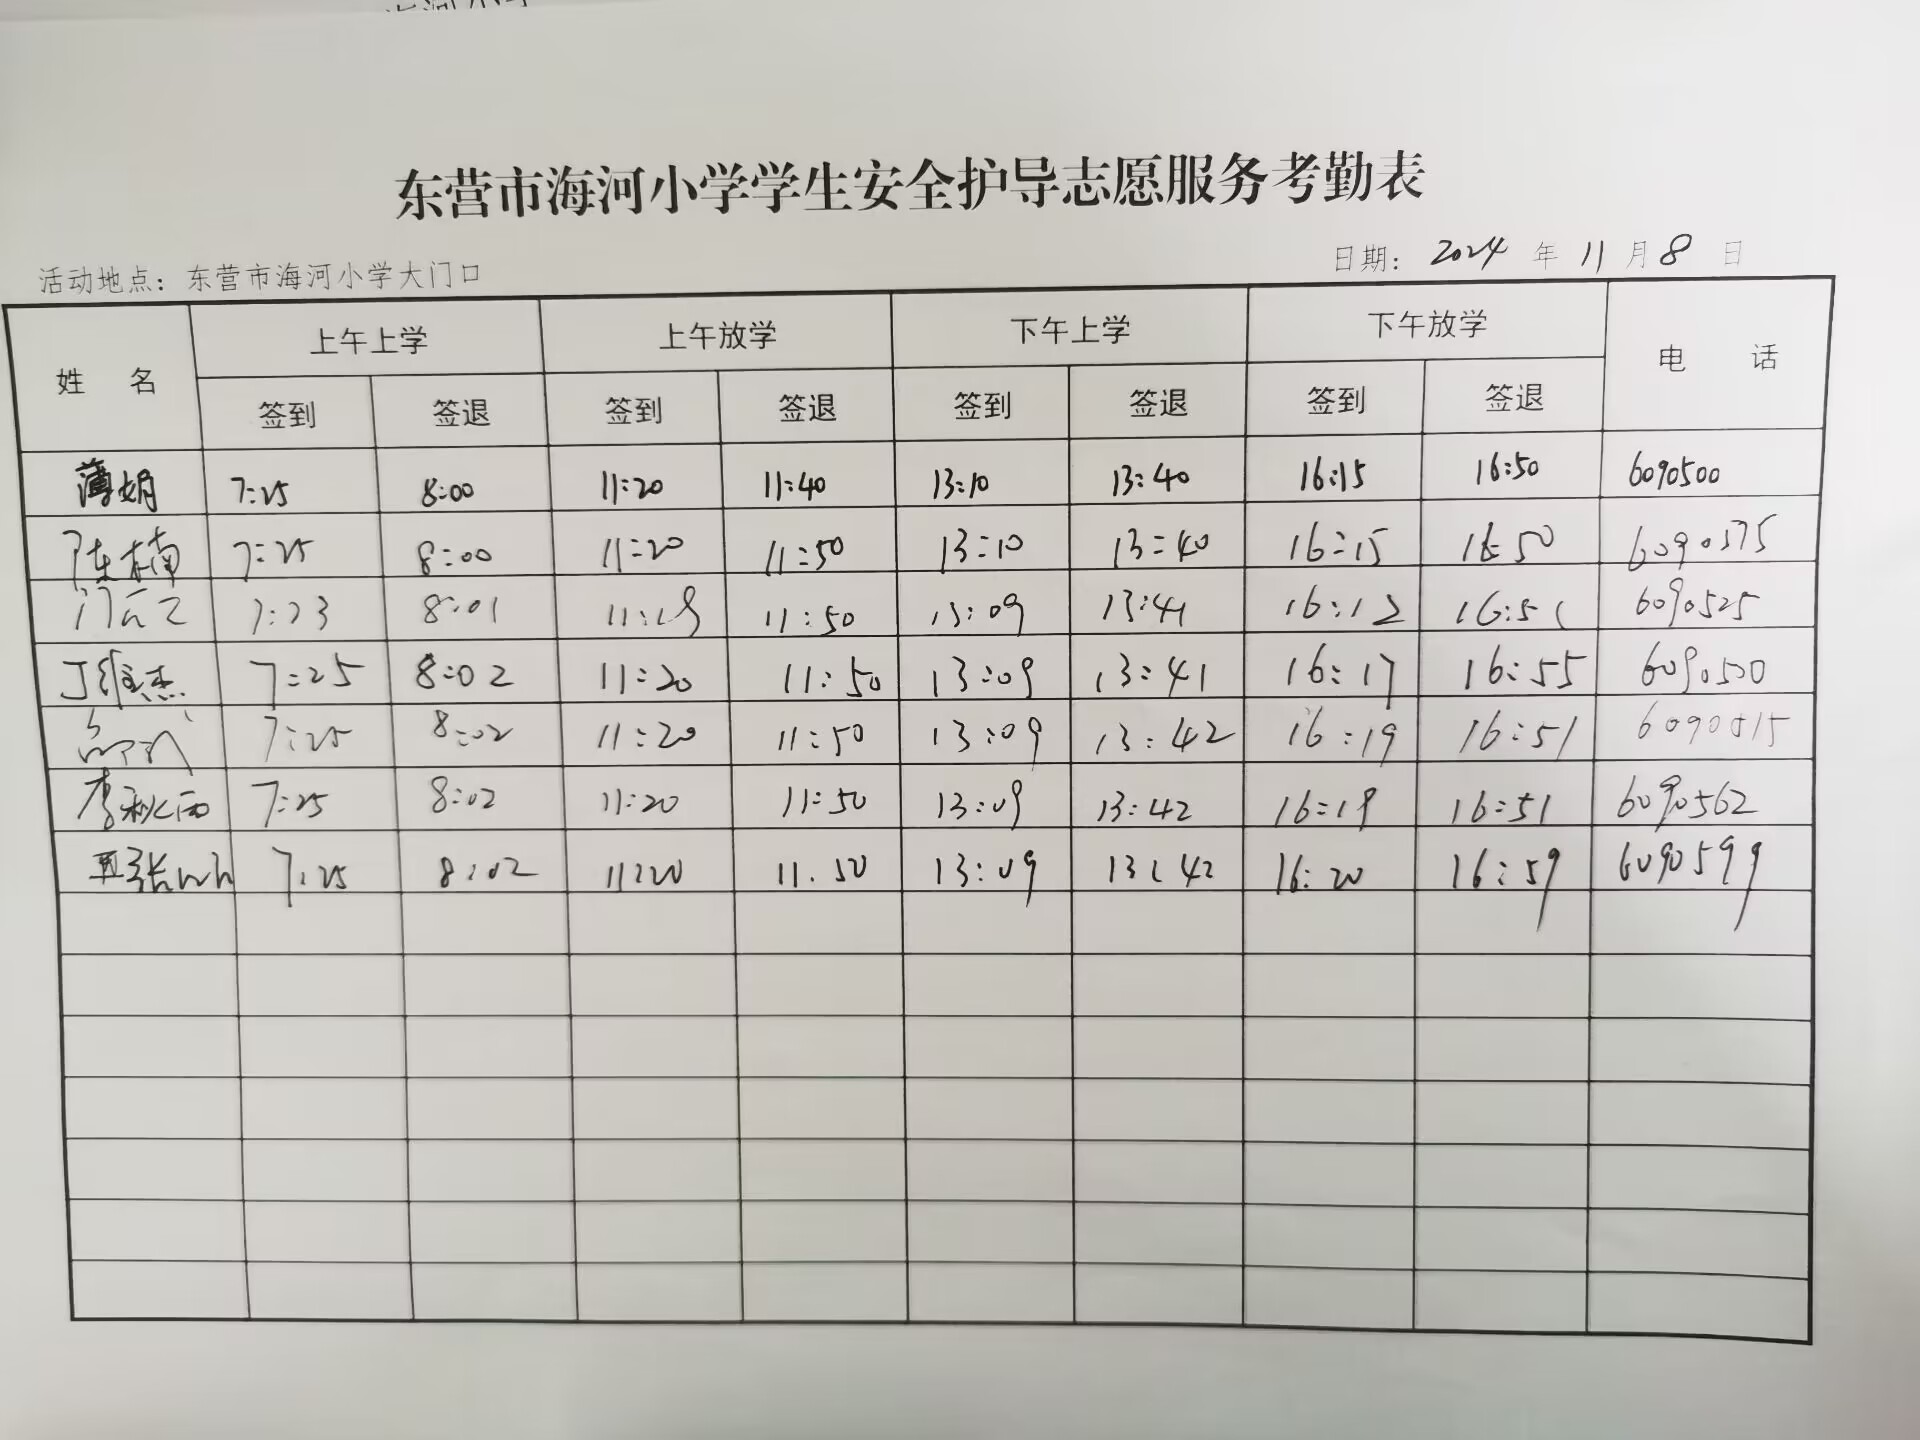 东营市海河小学学生安全护导志愿服务考勤表
活动地点：东营市海河小学大门口 日期：2024年11月8日
姓名 上午上学 上午放学 下午上学 下午放学 电话
签到 签退 签到 签退 签到 签退 签到 签退
薄娟 7:25 8:00 11:20 11:40 13:10 13:40 16:15 16:50 6090500
陈楠 7:25 8:00 11:20 11:50 13:10 13:40 16:15 16:50 6090575
7:23 8:01 11:50 13:09 13:41 16:12 16:51 6090525
丁维杰 7:25 8:02 11:20 11:50 13:09 13:41 16:17 16:55 6090500
7:25 8:02 11:20 11:50 13:09 13:42 16:19 16:51 6090515
李秋雨 7:25 8:02 11:20 11:50 13:09 13:42 16:19 16:51 6090562
7:25 8:02 11:20 11:50 13:09 13:42 16:20 16:59 6090599